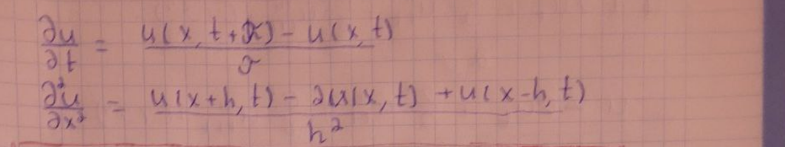 ∂u/∂t = (u(x, t+σ) - u(x, t))/σ
∂²u/∂x² = (u(x+h, t) - 2u(x, t) + u(x-h, t))/h²